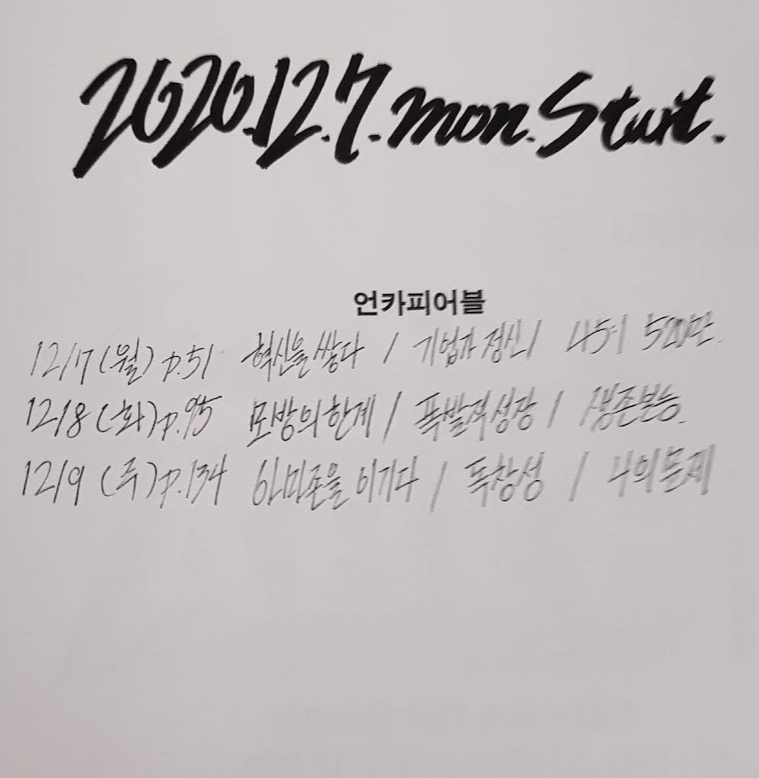 2020.12.7.mon.Start.
언카피어블
12/7 (월) p.51 혁신을 쌓다 / 기업가정신 /
12/8 (화) p.95 모방의 한계 / 폭발적 성장 / 생존본능.
12/9 (수) p.134 아마존을 이기다 / 독창성 / 나의 문제